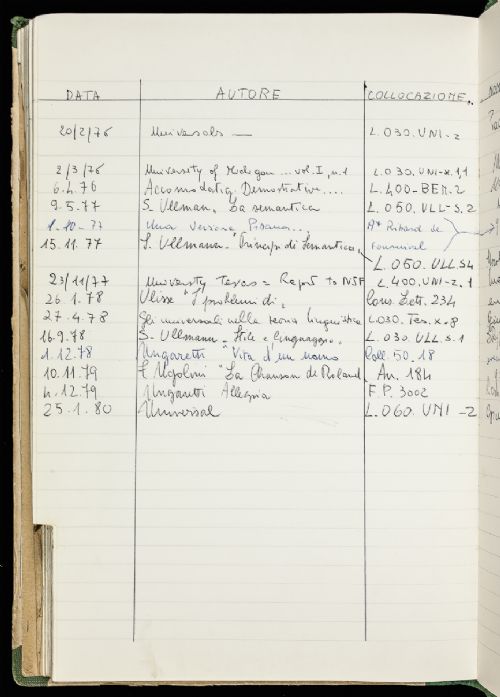 DATA AUTORE COLLOCAZIONE
20/2/76 Universals — L.030.UNI-2
2/3/76 University of Michigan ... vol. I, n.1 L.030.UNI-x.1,1
6.4.76 Accomodatig. Demonstrative.... L.400-BER.2
9.5.77 S. Ullman. La semantica L.050.VLL-S.2
1.10-77 Una versione Pisana... Richard de
Fournival
15.11.77 S. Ullmann. Principi di Semantica, L.050.ULL.S4
23/11/77 University Texas = Report to NSF L.400.UNI-2.1
26.1.78 Ulisse "I problemi di" Cons. Lett. 234
27.4.78 Gli universali nella teoria linguistica L.030.Tes.x-8
16.9.78 S. Ullmann - Stile e linguaggio, L.030.ULL S.1
1.12.78 Ungaretti "Vita d'un uomo Coll. 50.18
10.11.79 Ugolini "La Chanson de Roland An. 184
4.12.79 Ungaretti Allegria F.P. 3002
25.1.80 Universal L.060.UNI-2